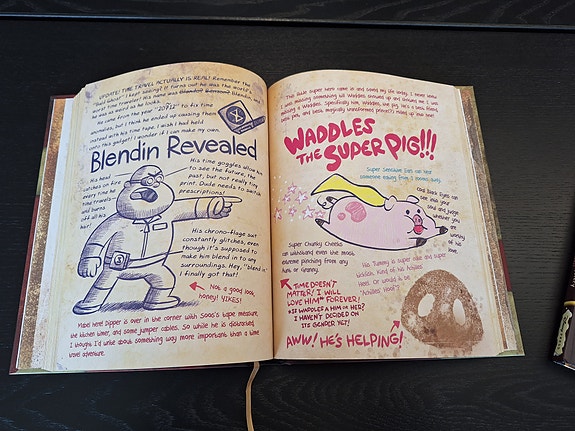 UPDATE! TIME TRAVEL ACTUALLY IS REAL! Remember the
"Bald What?" I kept seeing? It turns out he was the world's
worst time traveler! His name was Blendin, and
he was as weird as he looks.
He came from the year "207̃12" to fix time
anomalies, but I think he ended up causing them
instead with his time tape. I wish I had held
onto this gadget! I wonder if I can make my own.
Blendin Revealed
His head
catches on fire
every time he
time travels-
and burns
off all his
hair!
His time goggles allow him
to see the future, the
past, but not really tiny
print. Dude needs to switch
prescriptions!
His chrono-flage suit
constantly glitches, even
though it's supposed to
make him blend in to any
surroundings. Hey, "blend in,"
I finally got that!
Not a good look,
honey! YIKES!
Mabel here! Dipper is over in the corner with Soos's tape measure,
the kitchen timer, and some jumper cables. So while he is distracted,
I thought I'd write about something way more important than a time
travel adventure.
This dude super hero name is and saving my life today. I never knew
I was missing something till Waddles showed up and showed me I was
missing a Waddles. Specifically him, Waddles, the pig. He's a best friend,
best pen, and best magically transformed prince(?) mixed up into one!
WADDLES
THE SUPER PIG!!!
Super Sensitive Ears can hear
someone eating from 3 rooms away.
Cool black Eyes can
see into your
soul and judge
whether you
are
worthy
of his
love.
Super Chunky Cheeks
can withstand even the most
extreme pinching from any
Aunt or Granny.
His Tummy is super cute and super
ticklish. Kind of his Achilles
Heel. Or would it be
"Achilles' Hoof"?
TIME DOESN'T
MATTER! I WILL
LOVE HIM* FOREVER!
*IS WADDLES A HIM OR HER?
I HAVEN'T DECIDED ON
ITS GENDER YET!
AWW! HE'S HELPING!